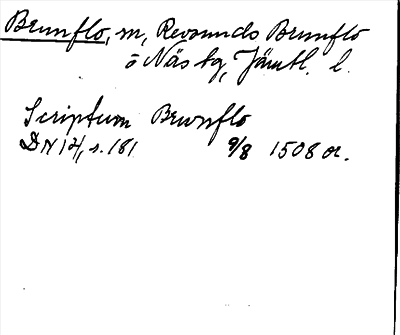 Brunflo, m, Revsunds Brunflo
o Näs tg, Jämtl. l.
Scriptum Brwnflo
DN 14, s. 181 9/8 1508 or.